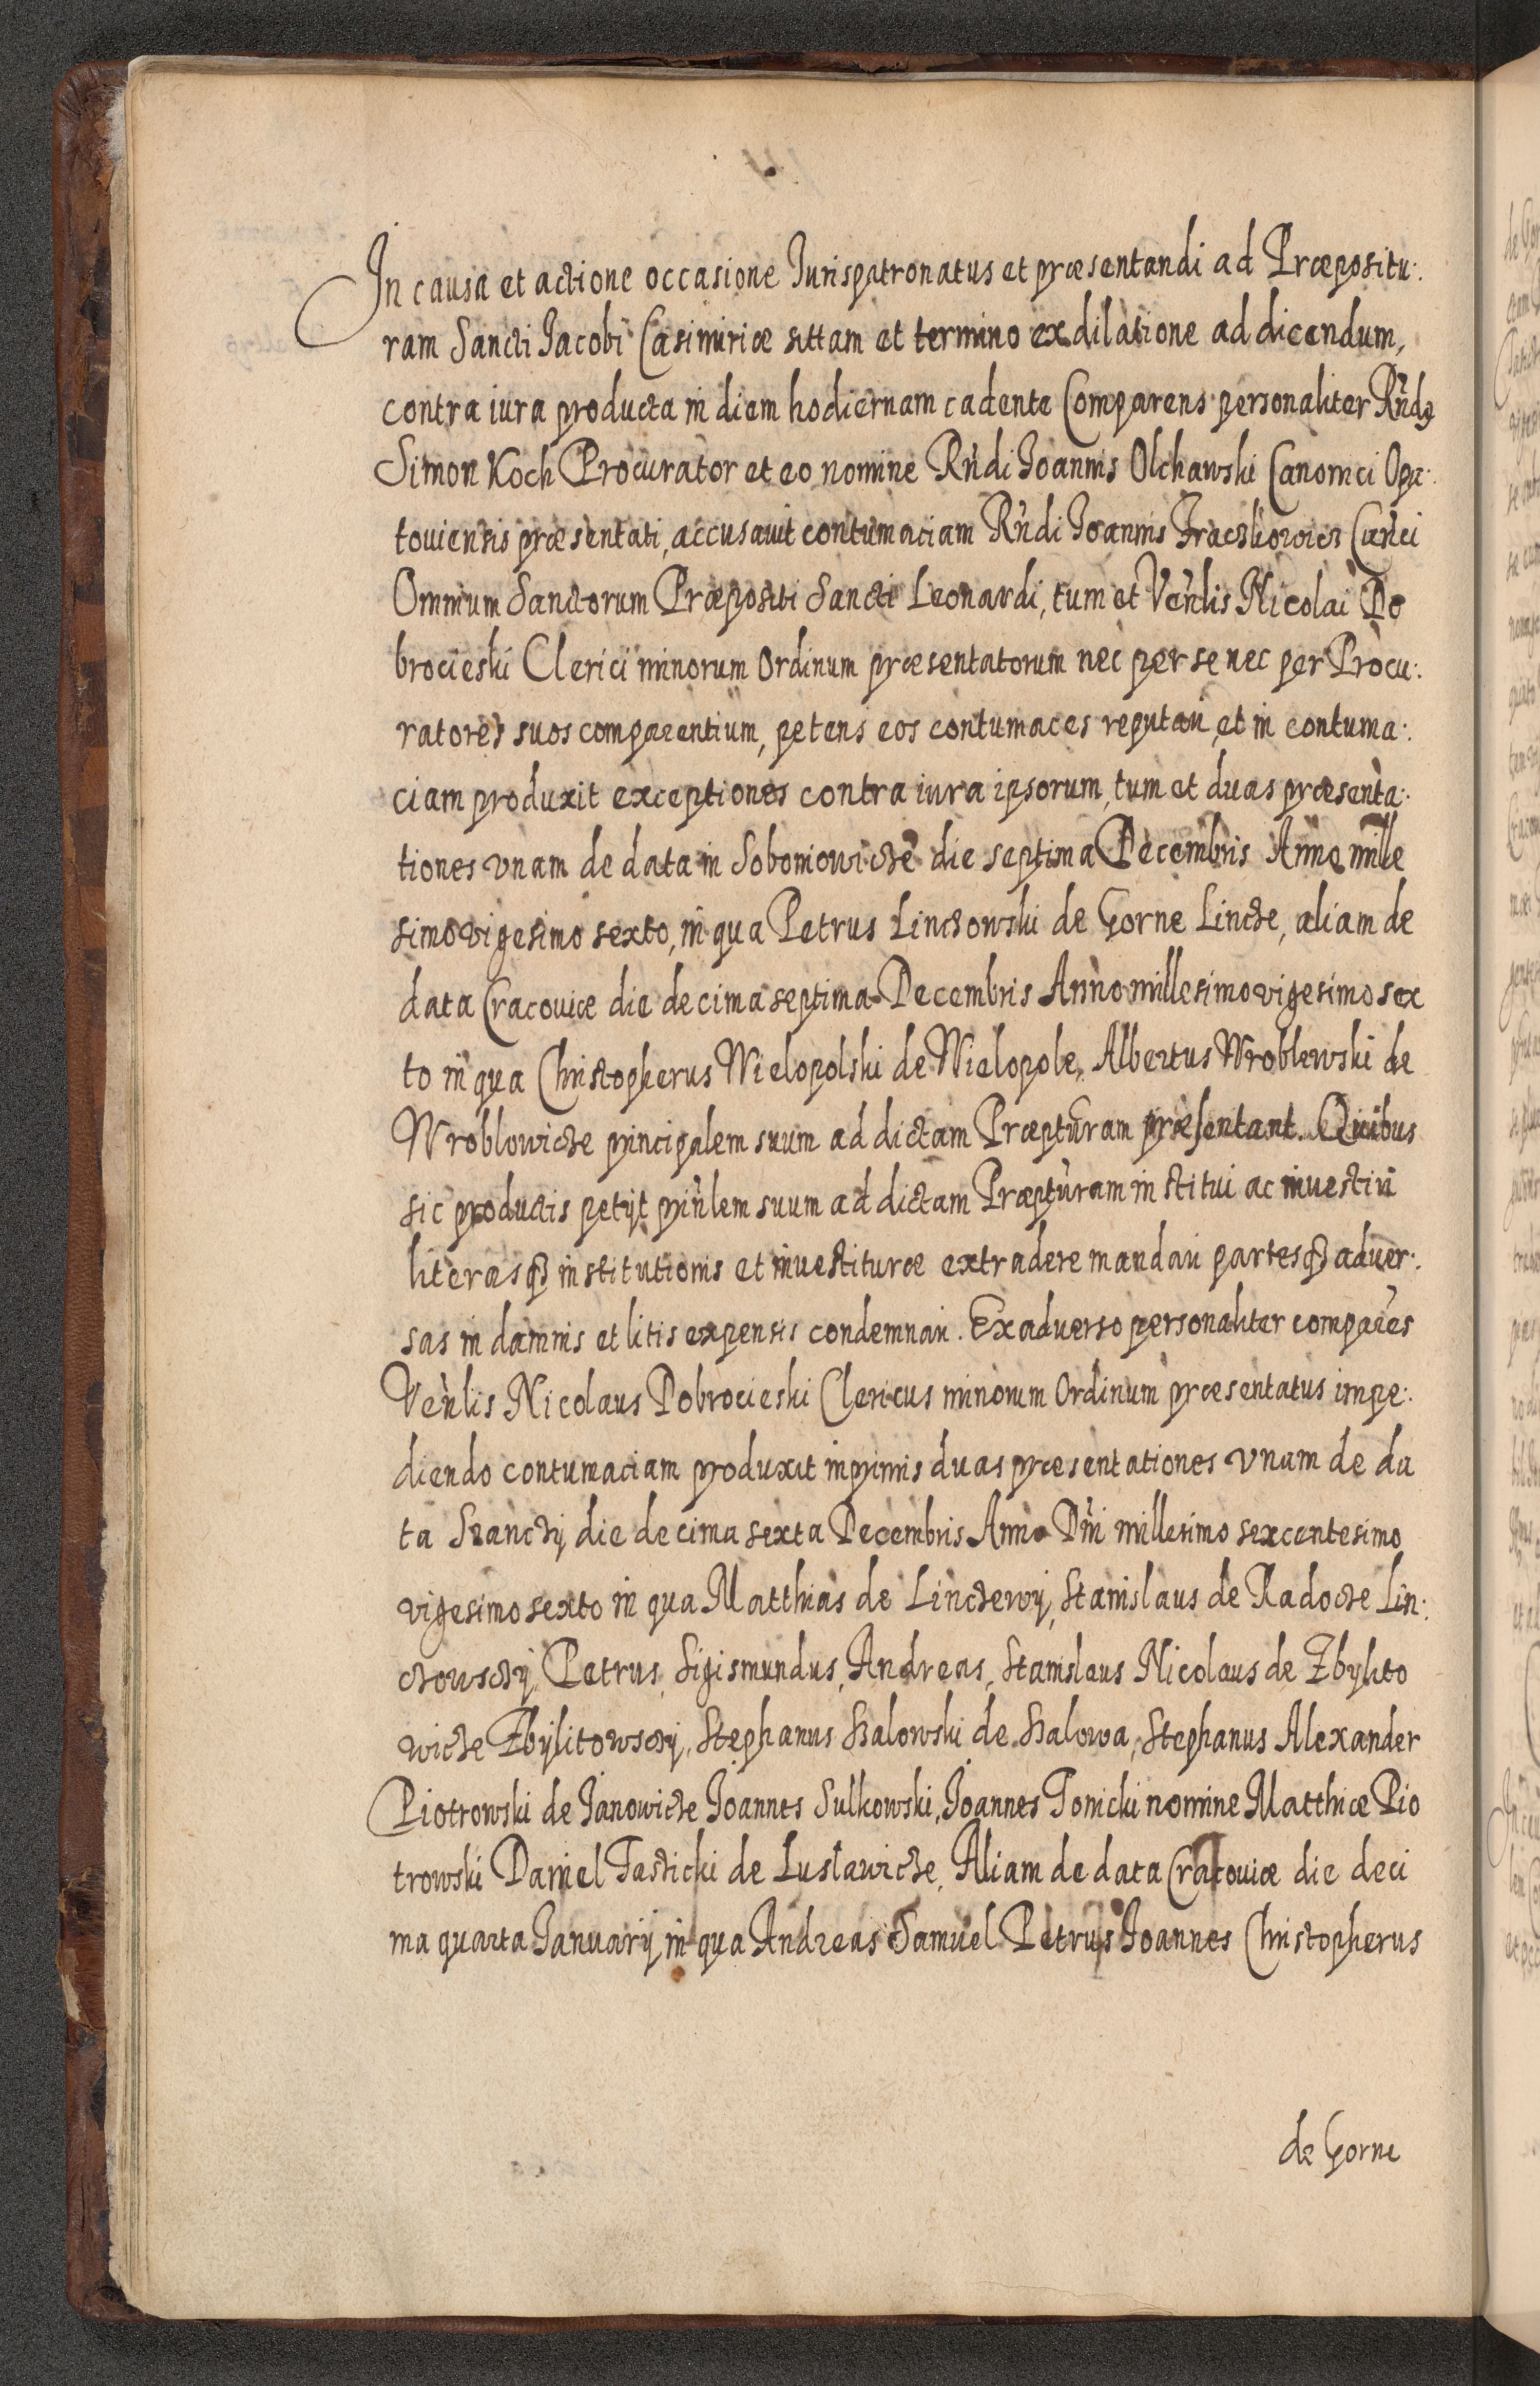 In causa et actione occasione Iurispatronatus et præsentandi ad Præpositu:
ram Sancti Iacobi Casimiriæ sittam et termino ex dilatione ad dicendum,
contra iura producta in diem hodiernam cadente Comparens personaliter Rńdꝯ
Simon Koch Procurator et eo nomine Rńdi Ioannis Olchawski Canonici Opa:
touiensis præsentati, accusauit contumaciam Rńdi Ioannis Fraczkowicz Cańci
Omnium Sanctorum Præpositi Sancti Leonardi, tum et Veńlis Nicolai Do
brocieski Clerici minorum Ordinum præsentatorum nec per se nec per Procu:
ratores suos comparentium, petens eos contumaces reputari, et in contuma:
ciam produxit exceptiones contra iura ipsorum, tum et duas præsenta:
tiones vnam de data in Soboniowicze die septima Decembris Anno mille
simo vigesimo sexto, in qua Petrus Linczowski de Gorne Lincze, aliam de
data Cracouiæ die decima septima Decembris Anno millesimo vigesimo sex
to in qua Christopherus Wielopolski de Wielopole, Albertus Wroblewski de
Wroblowicze principalem suum ad dictam Præpturam præsentant. Quibus
sic productis petijt prińlem suum ad dictam Præpturam institui ac inuestiri
literasqꝫ institutionis et inuestituræ extradere mandari partesqꝫ aduer:
sas in damnis et litis expensis condemnari. Ex aduerso personaliter compares
Veńlis Nicolaus Dobrocieski Clericus minorum Ordinum præsentatus impe:
diendo contumaciam produxit inprimis duas præsentationes vnam de da
ta Szanczij die decima sexta Decembris Anno Dńi millesimo sexcentesimo
vigesimo sexto in qua Matthias de Linczewij, Stanislaus de Radocze Lin:
czowsczij, Petrus, Sigismundus, Andreas, Stanislaus Nicolaus de Zbylito
wicze Zbylitowsczij, Stephanus Szalowski de Szalowa, Stephanus Alexander
Piotrowski de Ianowicze Ioannes Sulkowski, Ioannes Tonicki nomine Matthiæ Pio
trowski Daniel Taszicki de Luslawicze, Aliam de data Cracouiæ die deci
ma quarta Ianuarij in qua Andreas Samuel Petrus Ioannes Christopherus
de Gorne